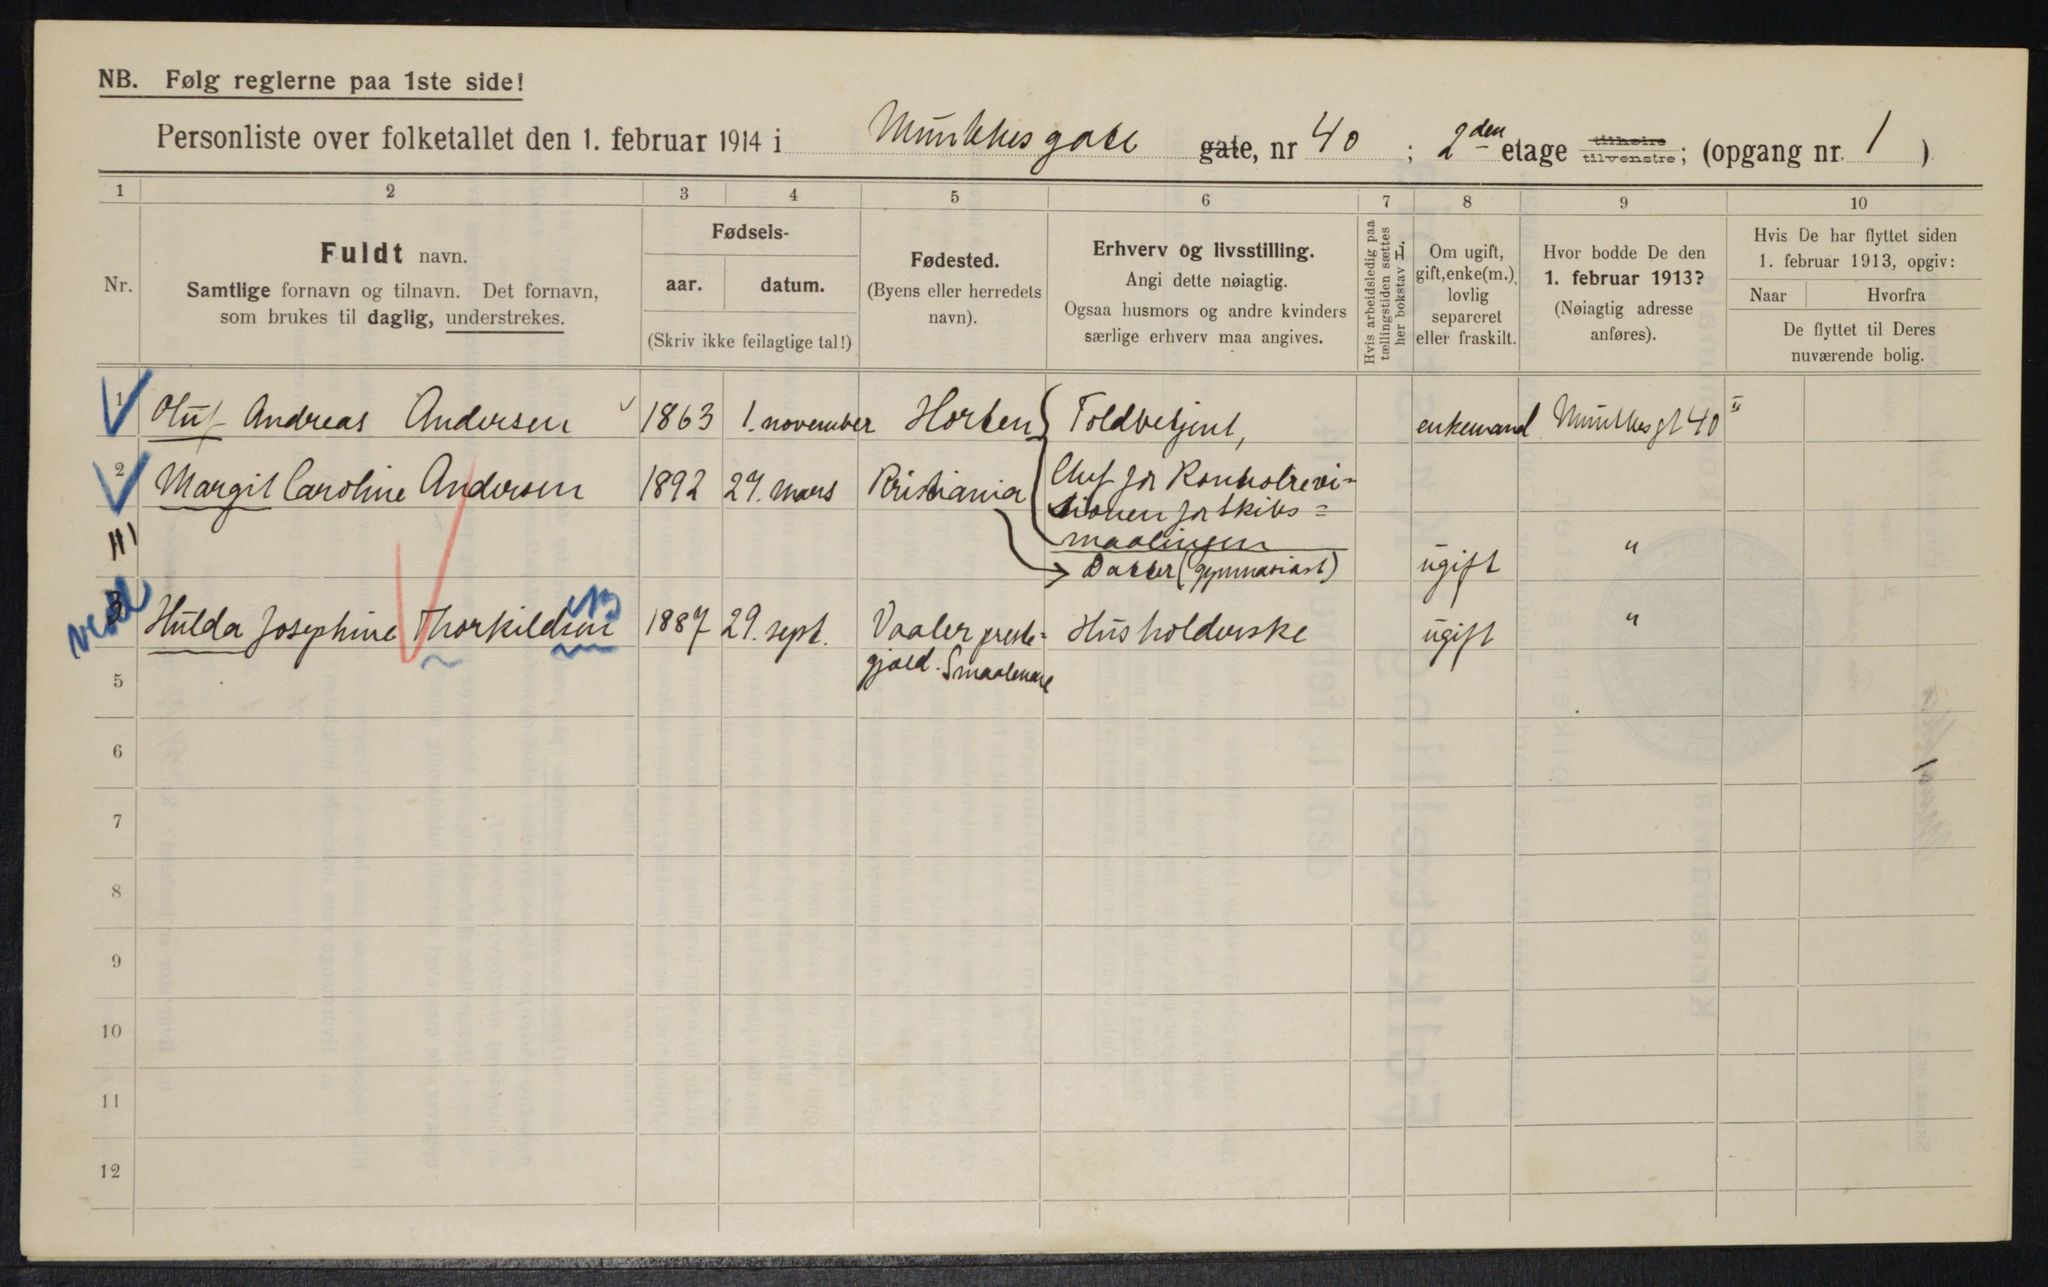 NB. Følg reglerne paa 1ste side!
Personliste over folketallet den 1. februar 1914 i Munkhesgate gate, nr 40 ; 2den etage tilhøire tilvenstre; (opgang nr. 1 )
1 2 3 4 5 6 7 8 9 10
Nr.
Fuldt navn.
Samtlige fornavn og tilnavn. Det fornavn,
som brukes til daglig, understrekes.
Fødsels-
aar. datum.
(Skriv ikke feilagtige tal!)
Fødested.
(Byens eller herredets
navn).
Erhverv og livsstilling.
Angi dette nøiagtig.
Ogsaa husmors og andre kvinders
særlige erhverv maa angives.
Hvis arbeidsledig paa
tællingstiden sættes
her bokstav L.
Om ugift,
gift, enke(m.),
lovlig
separeret
eller fraskilt.
Hvor bodde De den
1. februar 1913?
(Nøiagtig adresse
anføres).
Hvis De har flyttet siden
1. februar 1913, opgiv:
Naar Hvorfra
De flyttet til Deres
nuværende bolig.
1 Oluf Andreas Andersen 1863 1. november Horten Toldbetjent, enkemand Munkhesgt 40 II
2 Margit Caroline Andersen 1892 27. mars Kristiania Chef for Kontrolrevi=
sionen for Skibs=
maalingen
Datter (gymnasiast) ugift "
3 Hulda Josephine Thorkildsen 1887 29. sept. Vaaler preste= Husholderske ugift "
gjæld. Smaalenene
5
6
7
8
9
10
11
12